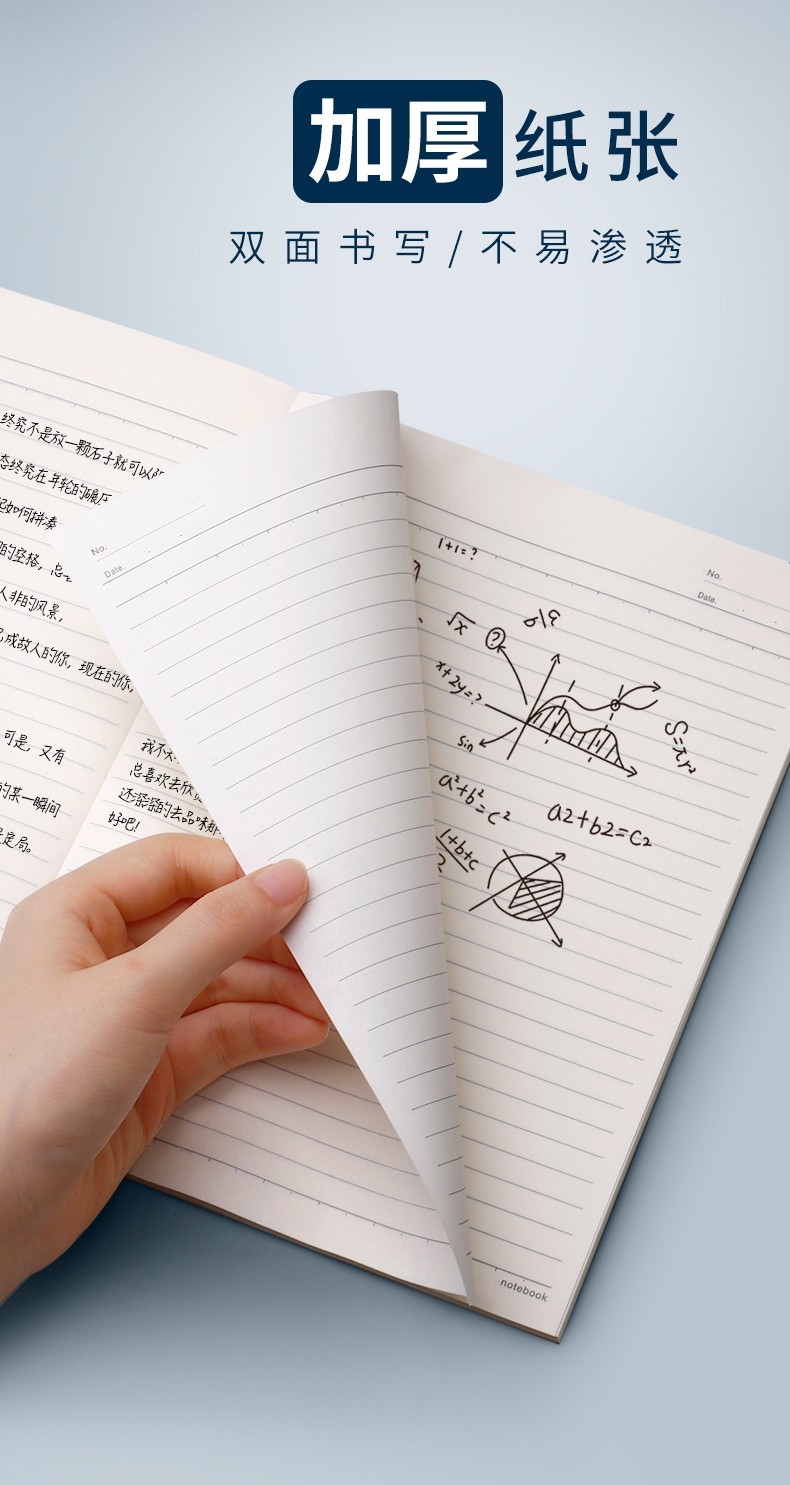 加厚纸张
双面书写/不易渗透
终究不是放一颗石子就可以
态终究在年轮的碾压
如何拼凑
的空格，总
人非的风景，
成故人的你，现在的你，
可是，又有
的某一瞬间
定局。
总喜欢去欣
还深深的去品味
好吧！
No.
Date.
1+1=?
No.
Date.
√x
?
x+2y=?
sin
S=πr²
a²+b²=c²
a2+b2=c2
1+b+c
2
notebook